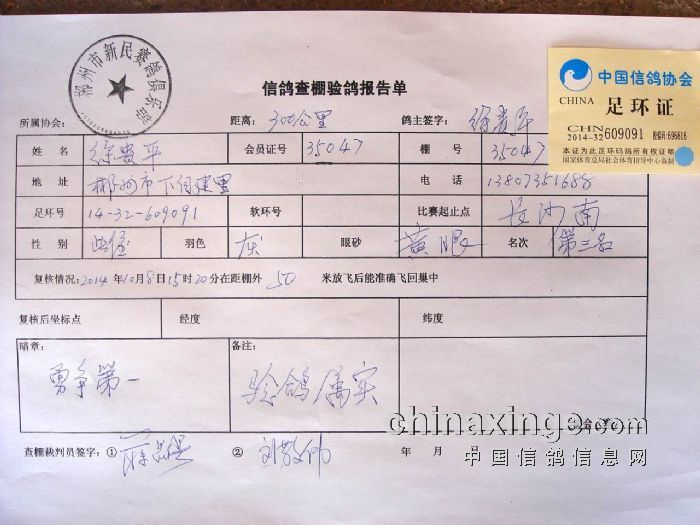 郴州市新民赛鸽俱乐部
信鸽查棚验鸽报告单
中国信鸽协会
CHINA 足环证
CHN
2014-32 609091 696616
本证为此足环码鸽所有权证明
国家体育总局社会体育指导中心监制
所属协会: 距离: 300公里 鸽主签字: 徐贵平
姓名 徐贵平 会员证号 35047 棚号 35047
地址 郴州市下 电话 13807351688
足环号 14-32-609091 软环号 比赛起止点 长沙南
性别 雌 羽色 灰 眼砂 黄眼 名次 第三名
复核情况: 2014年10月8日15时20分在距棚外 50 米放飞后能准确飞回巢中
复核后坐标点 经度 纬度
暗章: 备注:
勇争第一 验鸽属实
chinaxinge.com
查棚裁判员签字: ① ② 刘敬伟 年 月 日
中国信鸽信息网